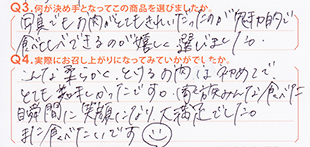 Q3.何が決め手となってこの商品を選びましたか。
写真でもお肉がとてもきれいだったのが魅力的で
食べ比べできるのが嬉しく選びました。
Q4.実際にお召し上がりになってみていかがでしたか。
こんな柔らかく、とけるお肉は初めてで、
とても美味しかったです。家族みんな食べた
瞬間に笑顔になり、大満足でした。
また食べたいです